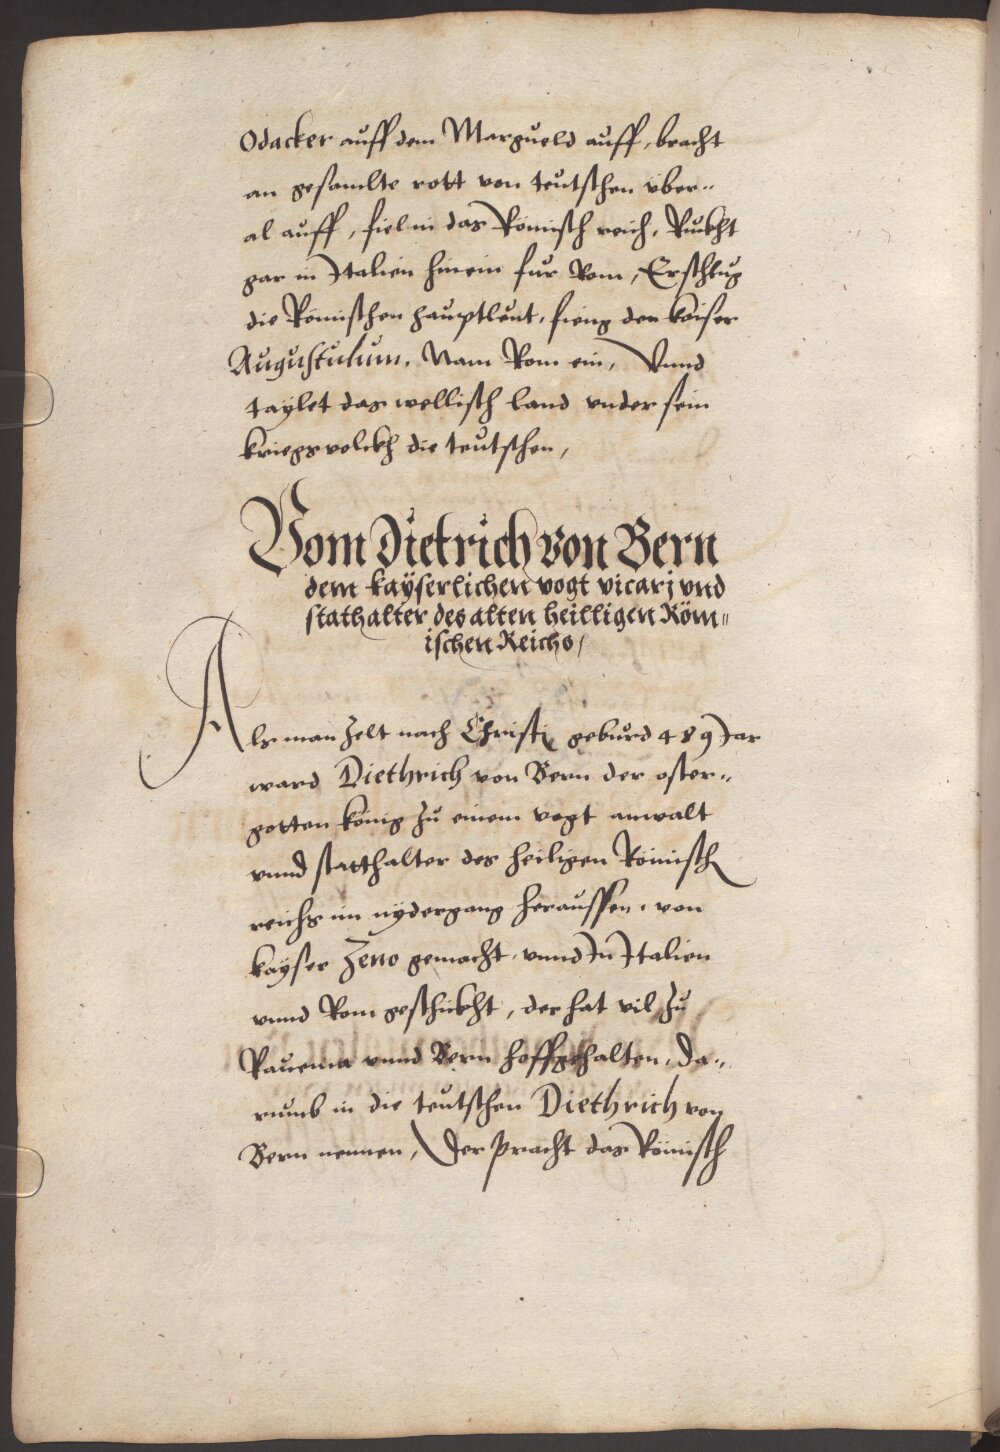 Odacker auff dem Margueld auff, bracht
an gesamlte rott von teutschen vber-
al auff, fiel in das Römisch reich, Ruckht
gar in Italien hinein für Rom, Erschlug
die Römischen hauptleut, fieng den kaiser
Augustulum, Nam Rom ein, Vnnd
taylet das wellisch land vnder sein
kriegsvolckh die teutschen,
Vom Dietrich von Bern
dem kaÿserlichen vogt vicarj vnd
stathalter des alten heilligen Röm-
ischen Reichs,
Als man zelt nach Christi geburd 489 Jar
ward Diethrich von Bern der oster-
gotten könig zu einem vogt anwalt
vnnd statthalter des heiligen Römisch
reichs im nÿdergang heraussen, von
kaÿser Zeno gemacht, vnnd In Italien
vnnd Rom geschickht, der hat vil zu
Rauenna vnnd Bern hoffgehalten, Da-
rumb in die teutschen Diethrich von
Bern nennen, Der pracht das Römisch